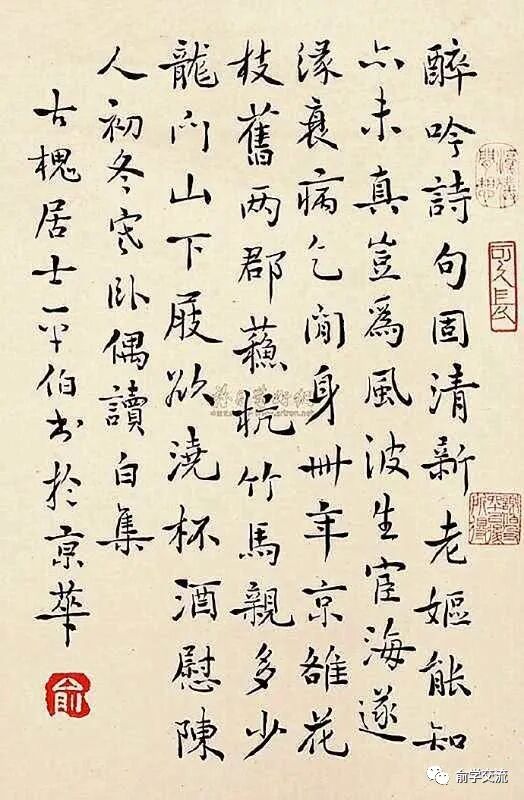 醉吟詩句固清新老嫗能知
亦未真豈為風波生宦海遂
緣衰病乞閒身卅年京雒花
枝舊兩郡蘓杭竹馬親多少
龍門山下屐欲澆杯酒慰陳
人初冬寒臥偶讀白集
古槐居士平伯書於京華
俞
俞学交流